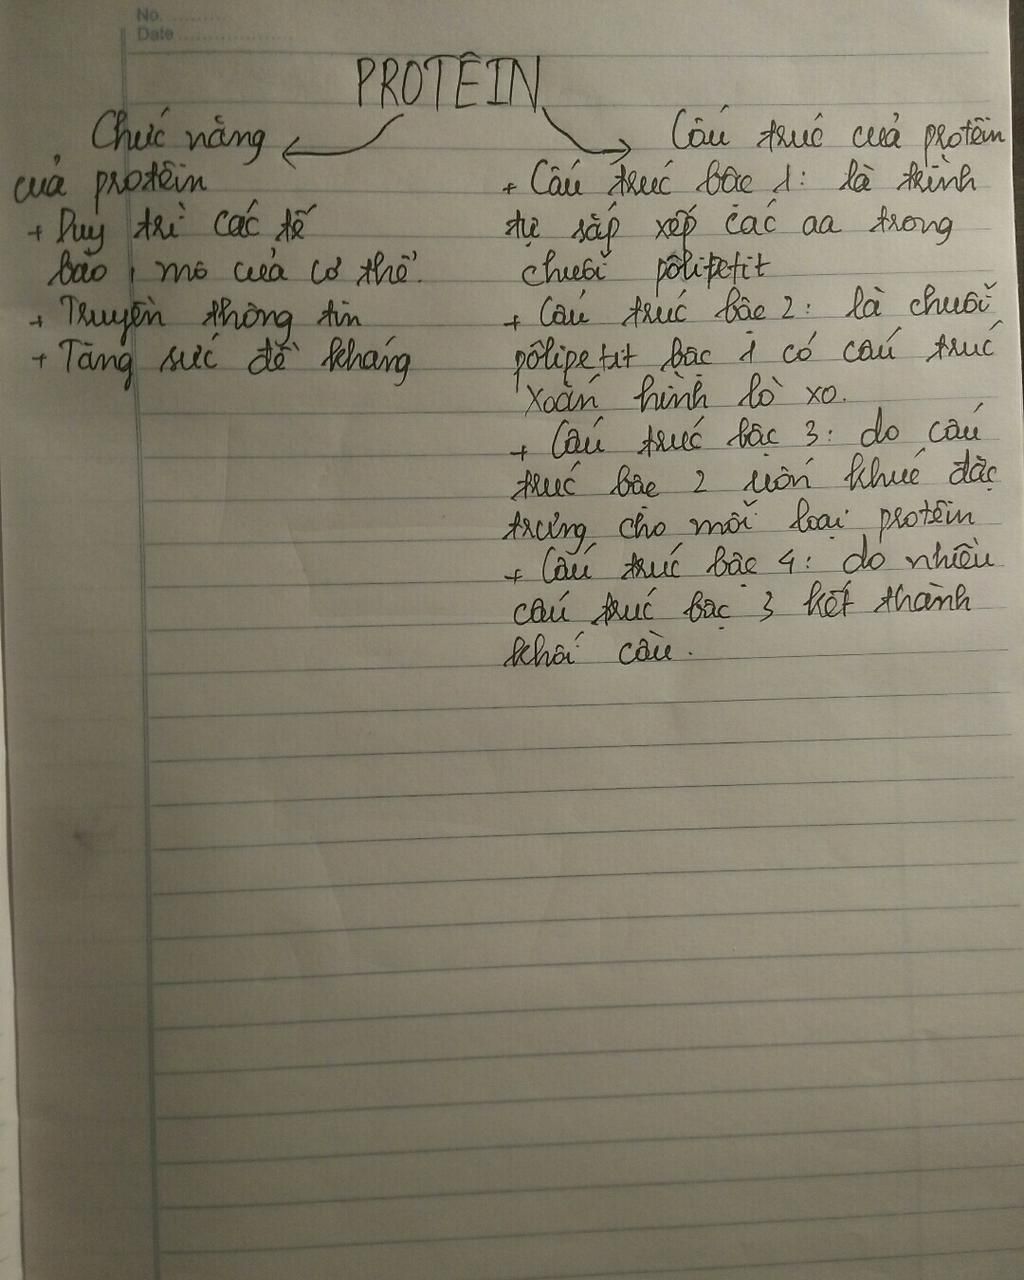 No.
Date
PRÔTÊIN
Chức năng
của prôtêin
+ Duy trì các tế
bào, mô của cơ thể.
+ Truyền thông tin
+ Tăng sức đề kháng
Cấu trúc của prôtêin
+ Cấu trúc bậc 1: là trình
tự sắp xếp các aa trong
chuỗi pôlipetit
+ Cấu trúc bậc 2: là chuỗi
pôlipetit bậc 1 có cấu trúc
xoắn hình lò xo.
+ Cấu trúc bậc 3: do cấu
trúc bậc 2 uốn khúc đặc
trưng cho mỗi loại prôtêin
+ Cấu trúc bậc 4: do nhiều
cấu trúc bậc 3 kết thành
khối cầu.